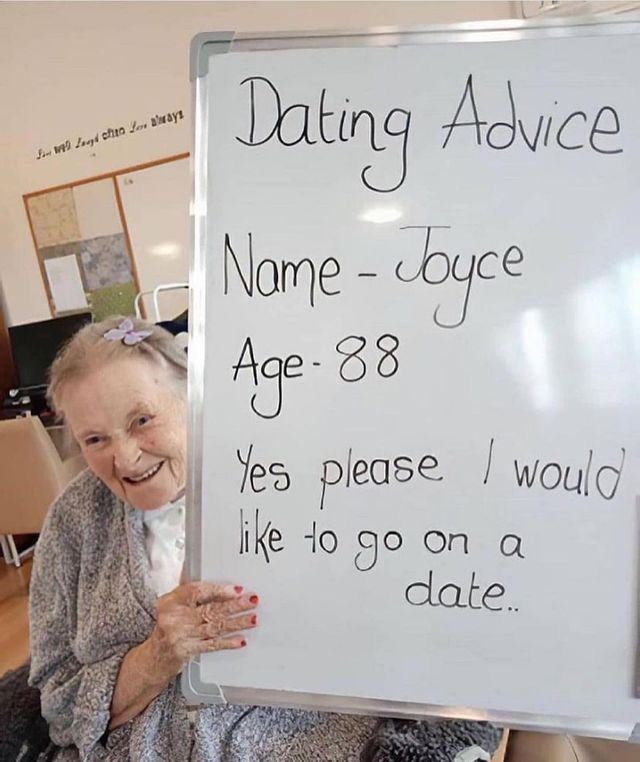 often
always
Dating Advice
Name - Joyce
Age - 88
Yes please I would
like to go on a
date..